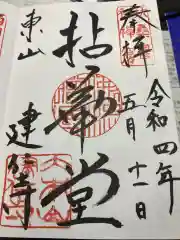 奉拝
令和四年
五月十一日
拈華堂
東山
建仁寺